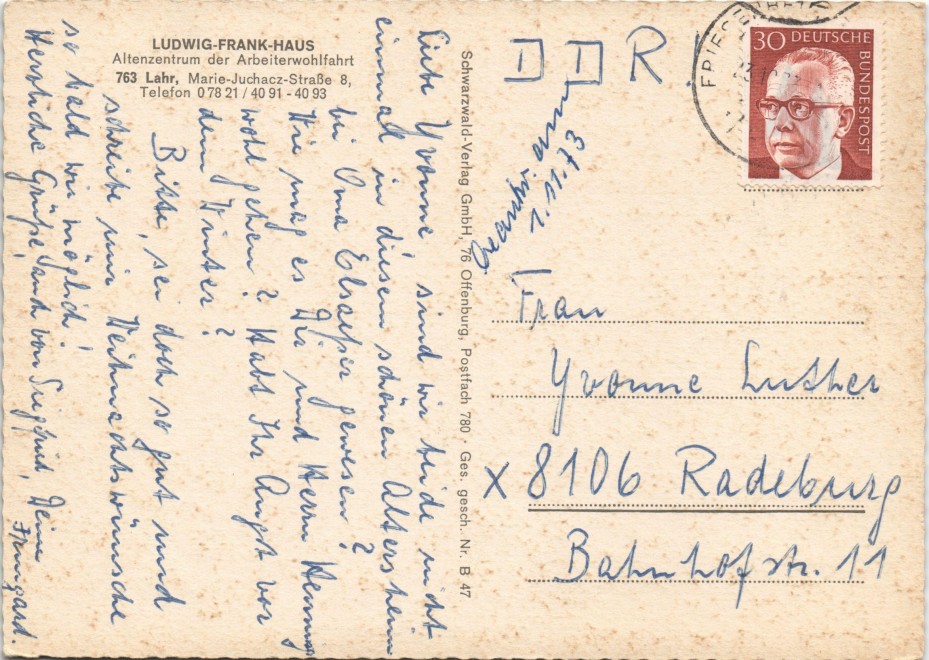 LUDWIG-FRANK-HAUS
Altenzentrum der Arbeiterwohlfahrt
763 Lahr, Marie-Juchacz-Straße 8,
Telefon 0 78 21 / 40 91 - 40 93
Liebe Yvonne, sind wir beide nicht
einmal in diesem schönen Altersheim
bei Oma Elsaßer gewesen?
Wie mag es Dir und Herrn Hennig
wohl gehen? Habt Ihr Angst vor
dem Winter?
Bitte, sei doch so gut und
schreibe mir Weihnachtswünsche
so bald wie möglich!
Herzliche Grüße, auch von Siegfried, Deine
Irmgard.
Schwarzwald-Verlag GmbH, 76 Offenburg, Postfach 780 · Ges. gesch. Nr. B 47
DDR
1.11.73
FRIESENHE
30 DEUTSCHE
BUNDESPOST
Frau
Yvonne Luther
X 8106 Radeburg
Bahnhofstr. 11